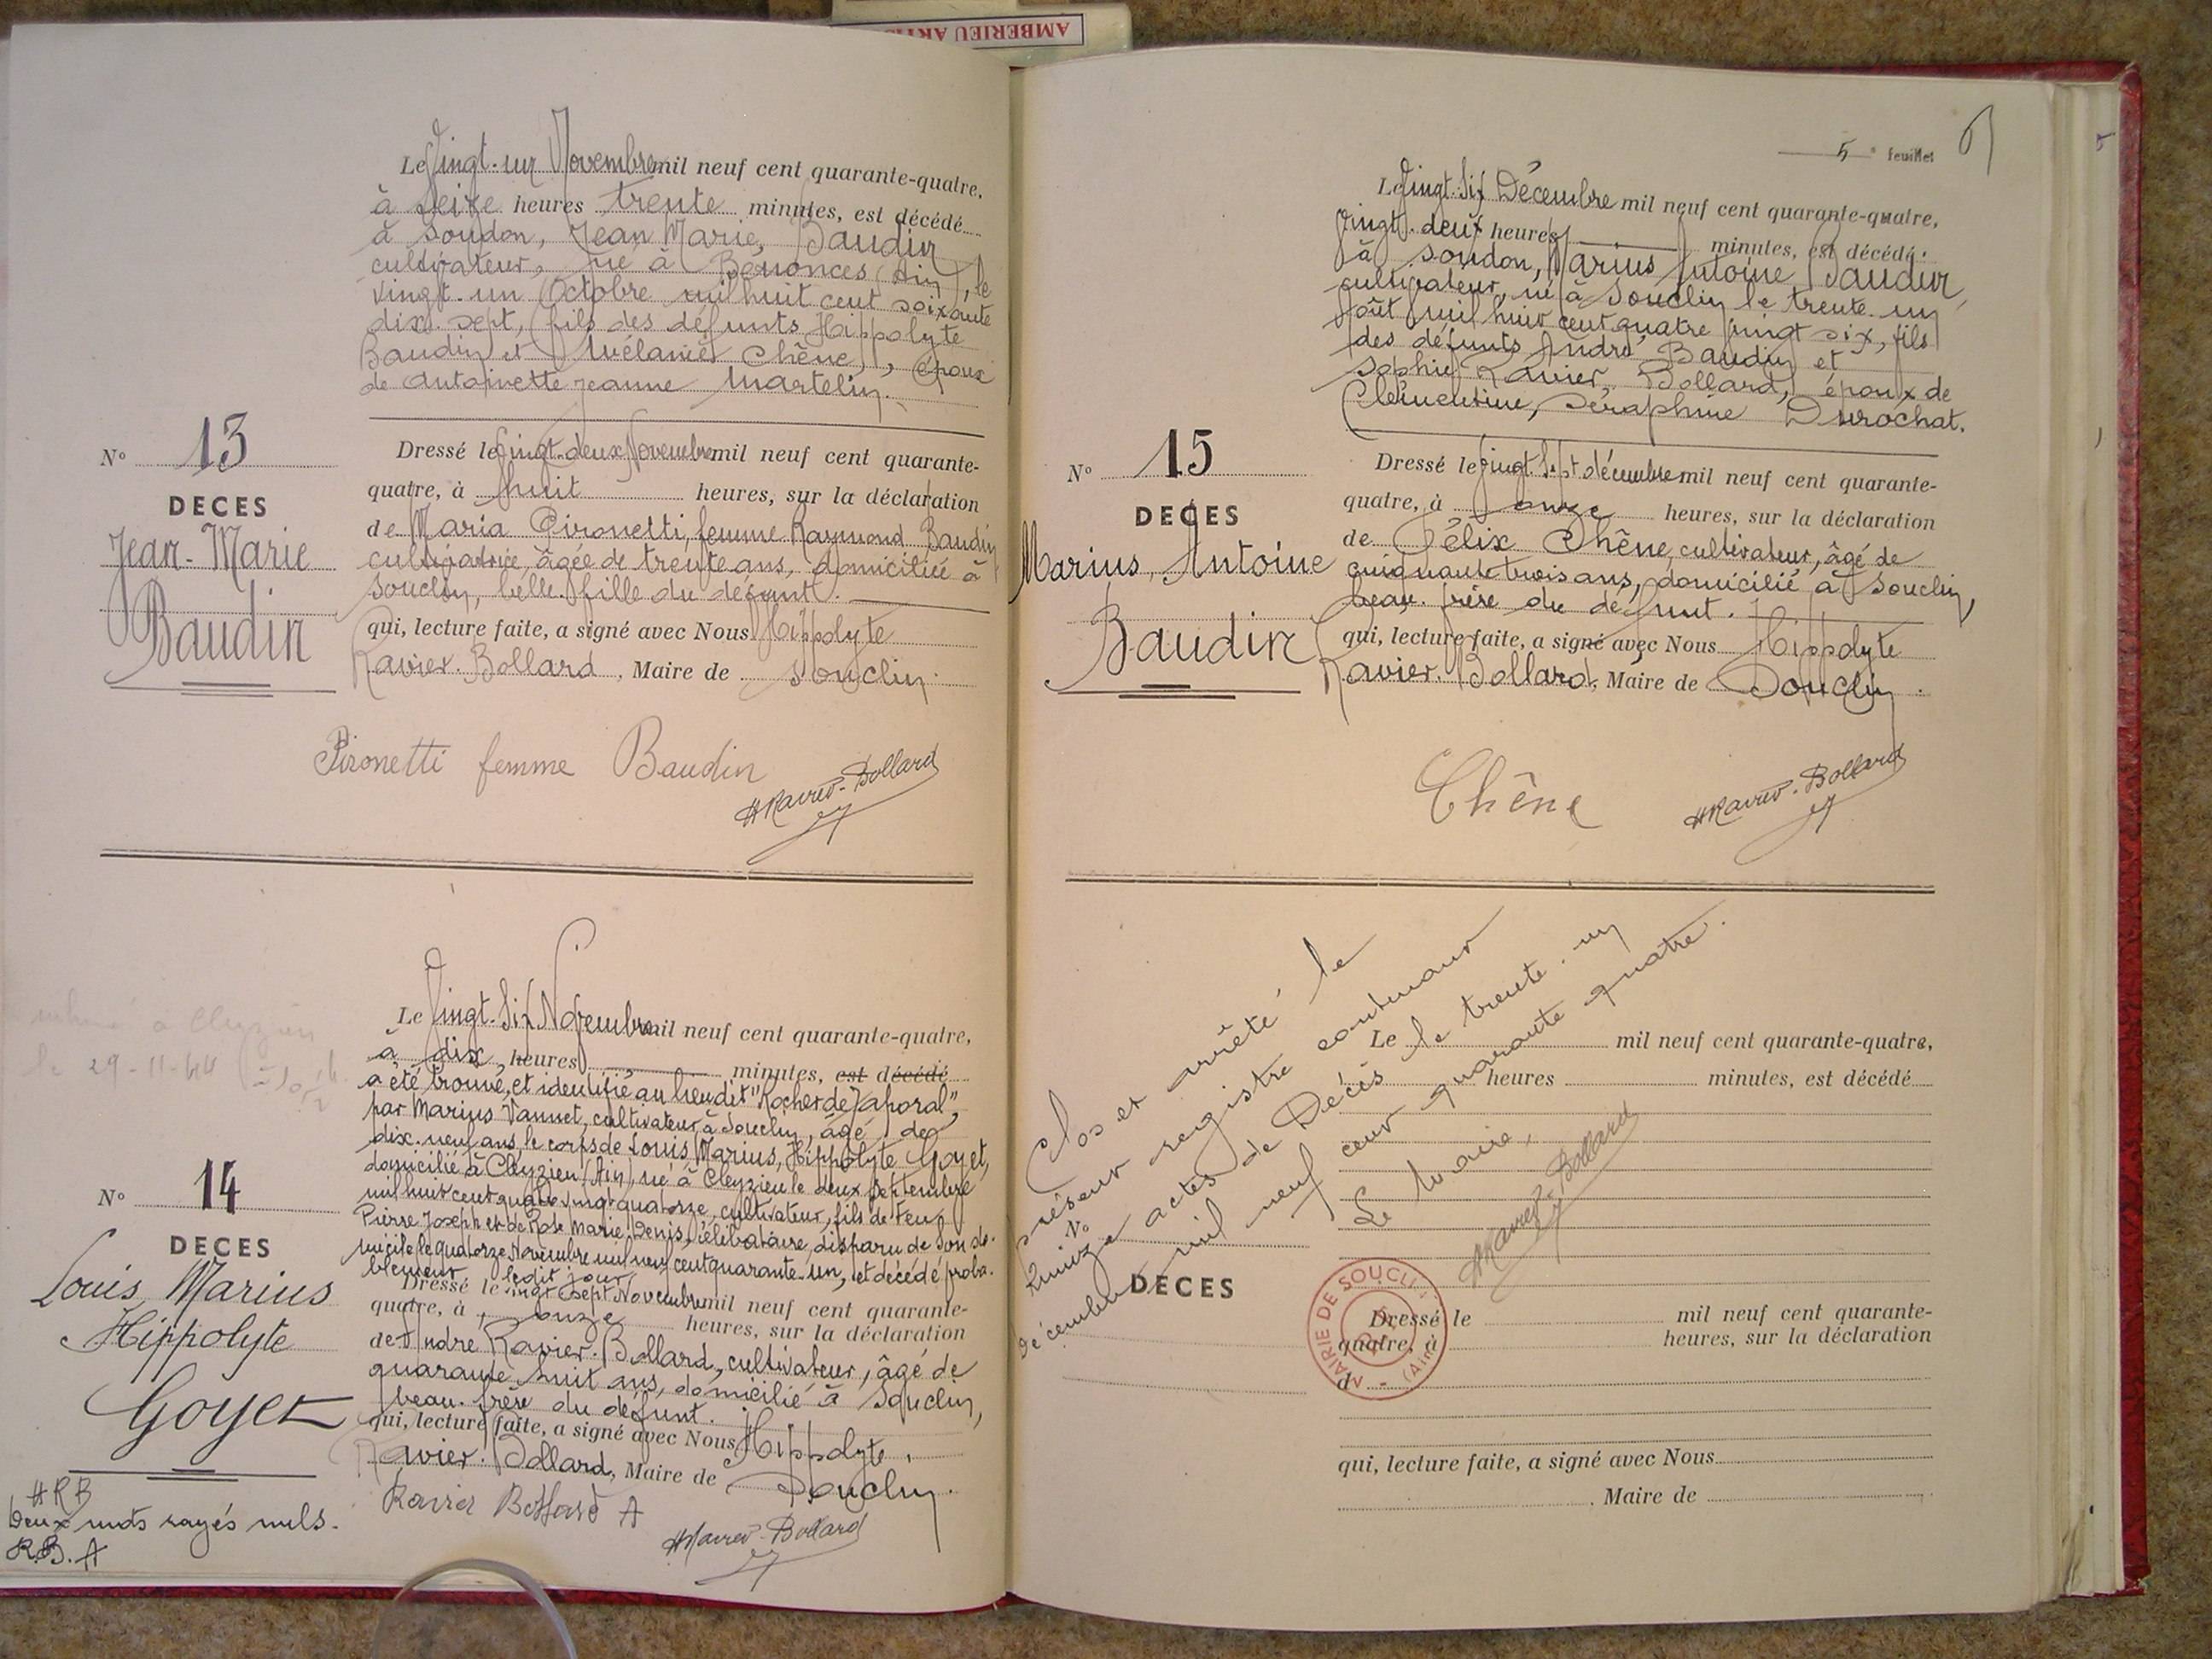 AMBERIEU
Le Vingt-un Novembre mil neuf cent quarante-quatre,
à seize heures trente minutes, est décédé
à Soudon, Jean Marie, Baudin
cultivateur, né à Bénonces (Ain), le
vingt-un Octobre mil huit cent soixante
dix-sept, fils des défunts Hippolyte
Baudin et Mélanie Chêne, époux
de Antoinette Jeanne Martelin.
N° 13
DECES
Jean-Marie
Baudin
Dressé le vingt-deux Novembre mil neuf cent quarante-
quatre, à huit heures, sur la déclaration
de Maria Pironetti, femme Raymond Baudin
cultivatrice, âgée de trente ans, domiciliée à
Souclin, belle-fille du défunt.
qui, lecture faite, a signé avec Nous Hippolyte
Ravier-Bollard, Maire de Souclin.
Pironetti femme Baudin
HRavier-Bollard
à Cleyzieu
le 29-11-44
Le Vingt-Six Novembre mil neuf cent quarante-quatre,
à dix heures minutes, est décédé
a été trouvé, et identifié au lieu dit "Rocher de
par Marius Vannet, cultivateur à Souclin, âgé de
dix-neuf ans, le corps de Louis, Marius, Hippolyte Goyet,
domicilié à Cleyzieu (Ain), né à Cleyzieu le deux Septembre
mil huit cent quatre vingt quatorze, cultivateur, fils de feu
Pierre Joseph et de Rose Marie Denis, célibataire, disparu de son do-
micile le quatorze Novembre mil neuf cent quarante-un, et décédé proba-
blement ledit jour.
N° 14
DECES
Louis Marius
Hippolyte
Goyet
Dressé le vingt sept Novembre mil neuf cent quarante-
quatre, à onze heures, sur la déclaration
de André Ravier-Bollard, cultivateur, âgé de
quarante huit ans, domicilié à Souclin,
beau-frère du défunt.
qui, lecture faite, a signé avec Nous Hippolyte
Ravier-Bollard, Maire de Souclin.
HRB
Deux mots rayés nuls.
R.B. A
Ravier Bollard A
HRavier-Bollard
5e feuillet
Le Vingt-Six Décembre mil neuf cent quarante-quatre,
vingt-deux heures minutes, est décédé
à Soudon, Marius Antoine Baudin,
cultivateur, né à Souclin le trente-un
Août mil huit cent quatre vingt six, fils
des défunts André Baudin et
Sophie Ravier-Bollard, époux de
Clémentine, Séraphine Durochat.
N° 15
DECES
Marius, Antoine
Baudin
Dressé le vingt-sept décembre mil neuf cent quarante-
quatre, à onze heures, sur la déclaration
de Félix Chêne, cultivateur, âgé de
cinquante trois ans, domicilié à Souclin,
beau-frère du défunt.
qui, lecture faite, a signé avec Nous Hippolyte
Ravier-Bollard, Maire de Souclin.
Chêne
HRavier-Bollard
Clos et arrêté le
présent registre contenant
Quinze actes de Décès le trente-un
décembre mil neuf cent quarante quatre.
Le Maire,
HRavier-Bollard
Le mil neuf cent quarante-quatre,
heures minutes, est décédé
N°
DECES
MAIRIE DE SOUCLIN
(Ain)
Dressé le mil neuf cent quarante-
quatre, à heures, sur la déclaration
d
qui, lecture faite, a signé avec Nous
, Maire de